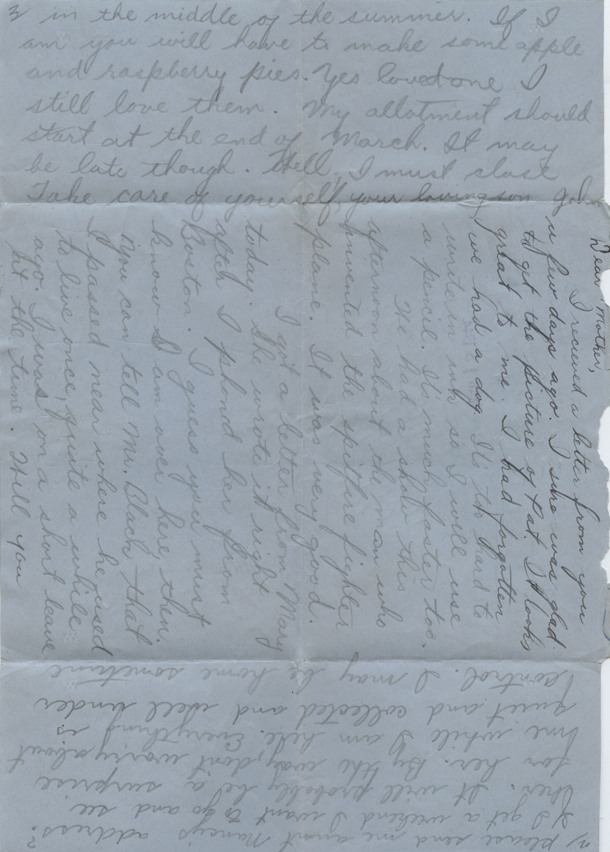 Dear Mother,
I recieved a letter from you
a few days ago. I sure was glad
to get the picture of Pat. It looks
great to me I had forgotten
we had a dog. It's to hard to
write in ink so I will use
a pencil. Its much faster too.
We had a show this
afternoon about the man who
invented the spitfire fighter
plane. It was very good.
I got a letter from Mary
today. She wrote it right
after I phoned her from
Boston. I guess you must
know I am over here then.
You can tell Mr. Black that
I passed near where he used
to live once, quite a while
ago. I was on a short leave
at the time. Will you
2/ please send me aunt Nancy's address?
If I get a weekend I want to go and see
her. It will probably be a surprise
for her. By the way, don't worry about
me while I am here. Everything is
quiet and collected and well under
control. I may be home sometime
3 in the middle of the summer. If I
am you will have to make some apple
and raspberry pies. Yes loved one I
still love them. My allotment should
start at the end of March. It may
be late though. Well, I must close
Take care of yourself, your loving son